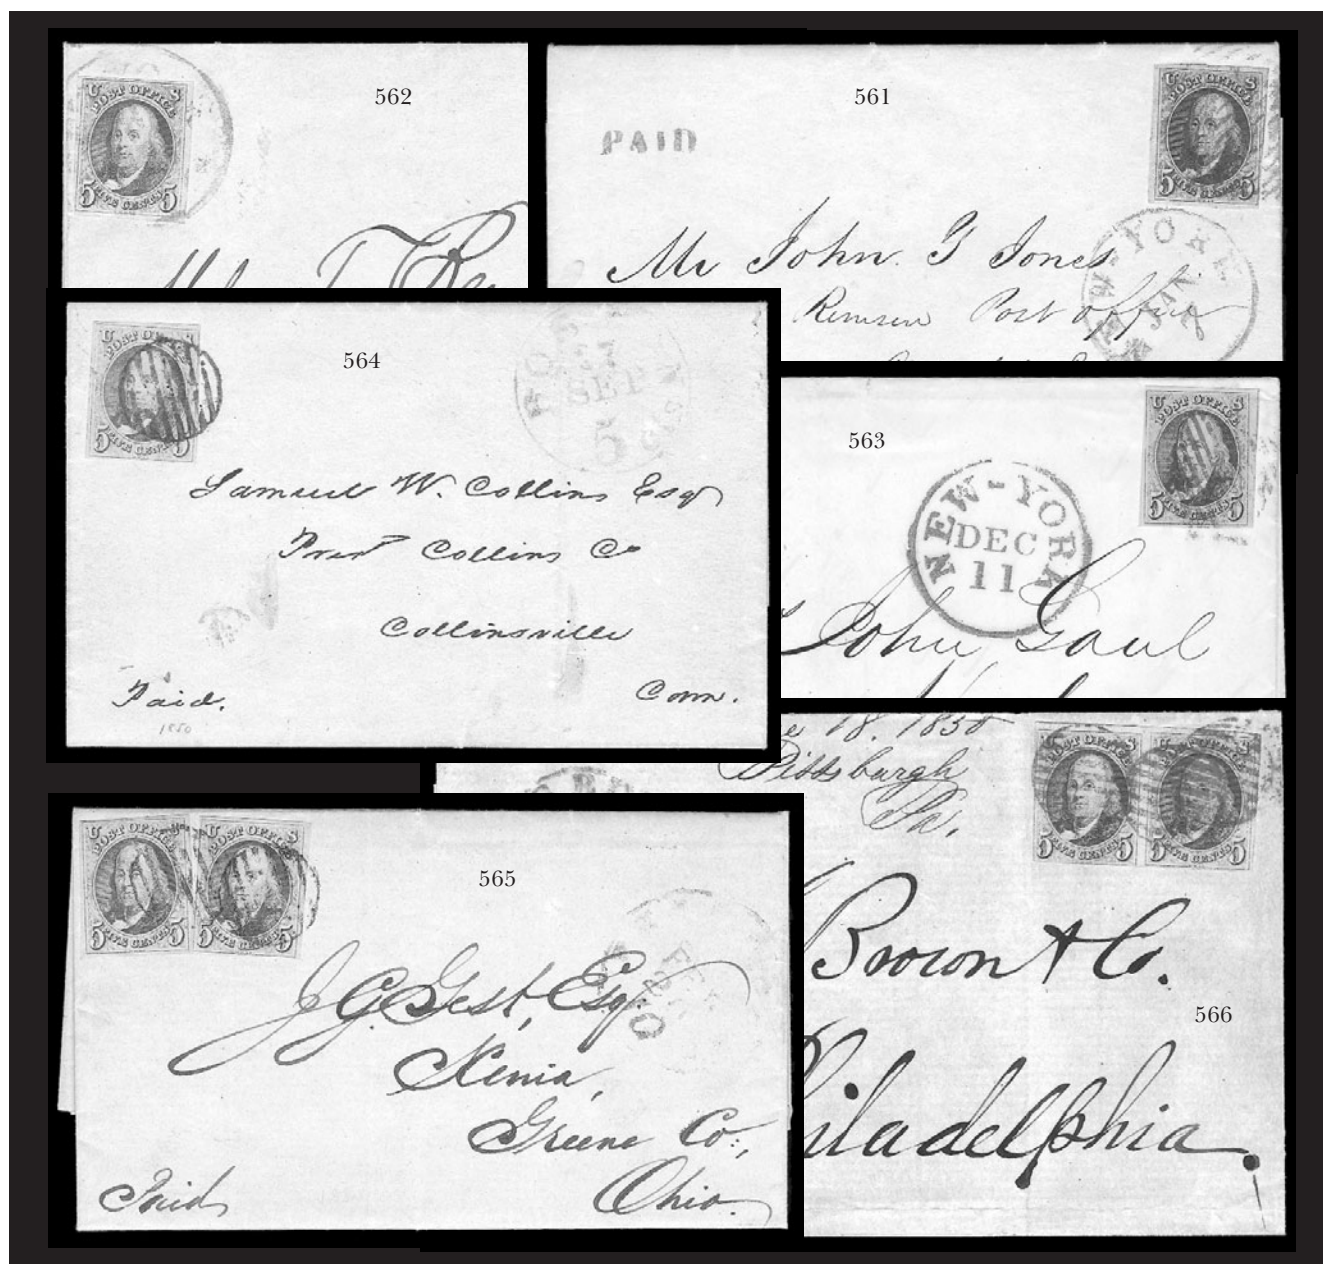 562
U S
POST OFFICE
5 FIVE CENTS 5
561
PAID
U S
POST OFFICE
5 FIVE CENTS 5
Mr John G Jones
Remsen Post office
NEW-YORK
JAN
8
564
U S
POST OFFICE
5 FIVE CENTS 5
SEP
5 cts
Samuel W. Collins Esq
Prest Collins Co
Collinsville
Paid.
Conn.
1850
563
U S
POST OFFICE
5 FIVE CENTS 5
NEW-YORK
DEC
11
John Gaul
18. 1850
Pittsburgh
Pa.
U S
POST OFFICE
5 FIVE CENTS 5
U S
POST OFFICE
5 FIVE CENTS 5
Brown & Co.
566
Philadelphia.
565
U S
POST OFFICE
5 FIVE CENTS 5
U S
POST OFFICE
5 FIVE CENTS 5
J G Gest, Esq.
Xenia,
Greene Co.,
Paid
Ohio.